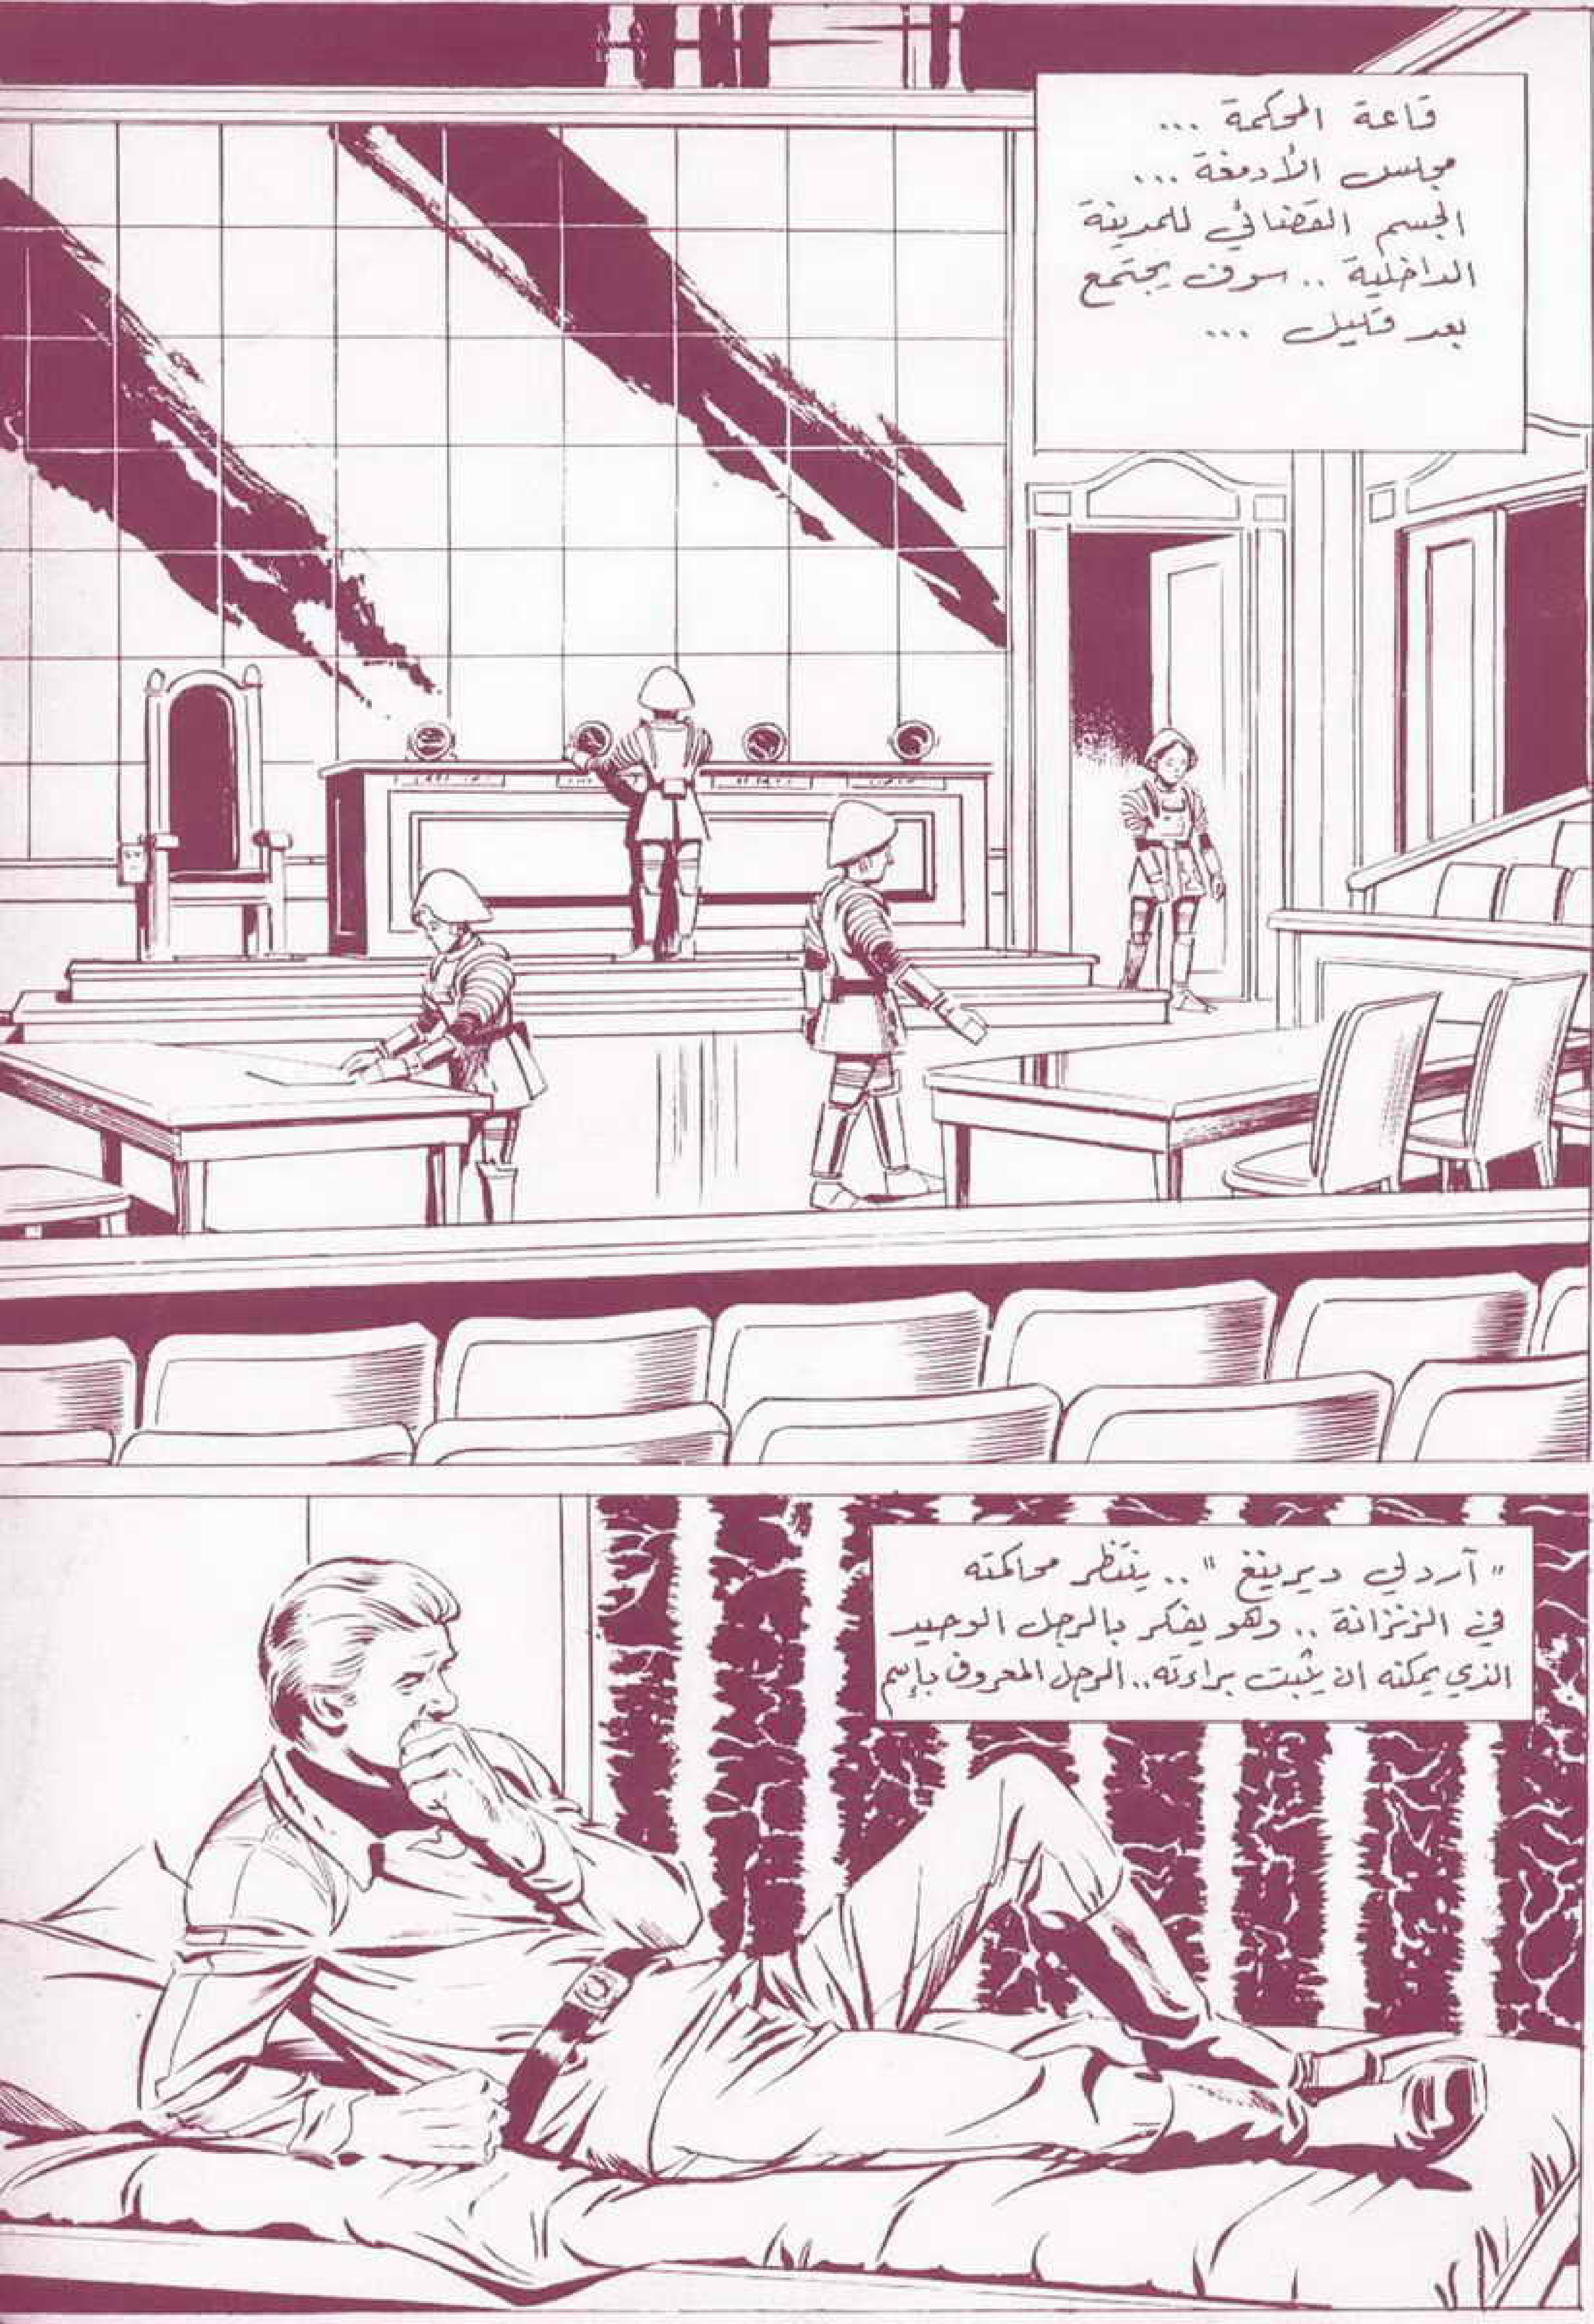 قاعة المحكمة ...
مجلس الأدمغة ...
الجسم القضائي للمدينة
الداخلية .. سوف يجتمع
بعد قليل ...
" آردلي ديرينغ " .. ينتظر محاكمته
في الزنزانة .. وهو يفكر بالرجل الوحيد
الذي يمكنه ان يثبت براءته.. الرجل المعروف بإسم